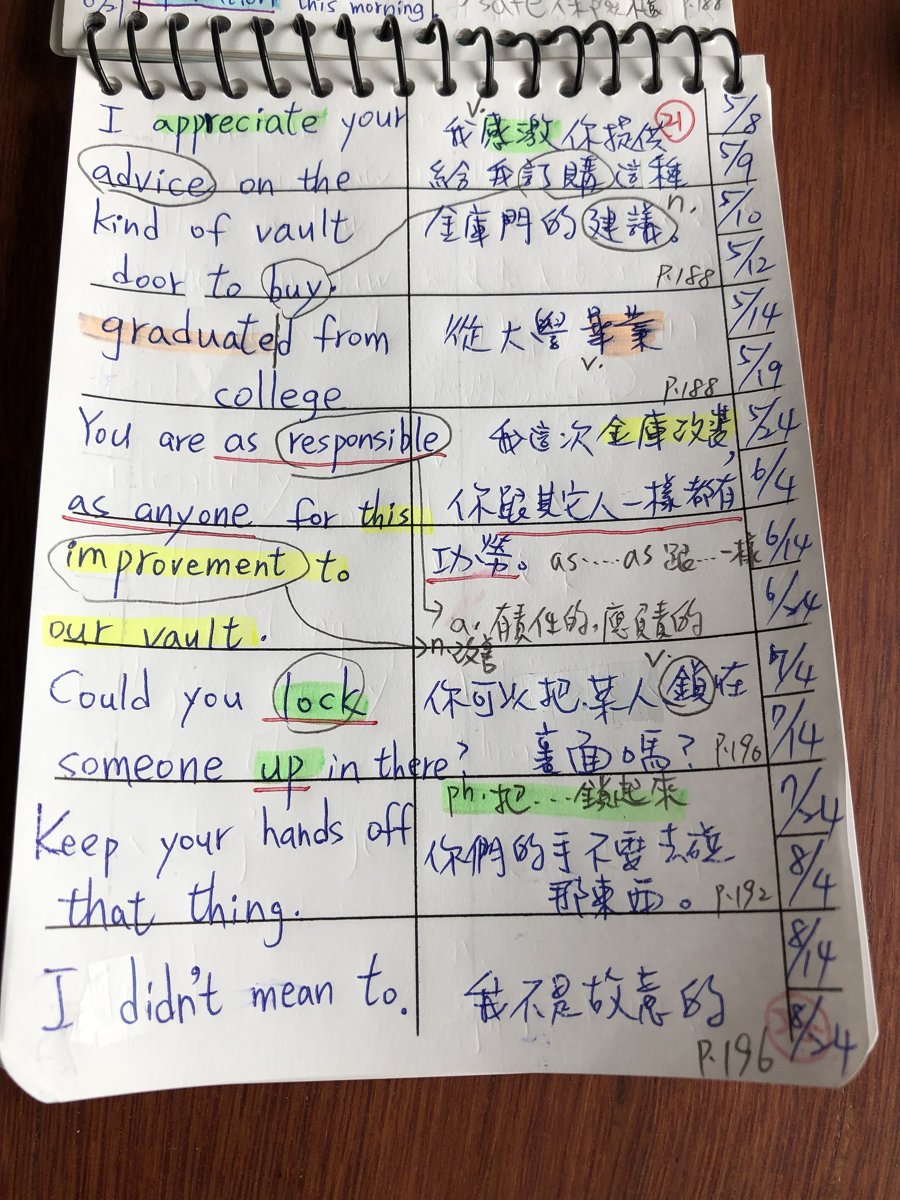 this morning.
P.188
I appreciate your
advice on the
kind of vault
door to buy.
v.
我感激你提供
21
給我訂購這種
n.
金庫門的建議。
P.188
graduated from
college
從大學畢業
v.
P.188
You are as responsible
as anyone for this
improvement to
our vault.
我這次金庫改善,
你跟其它人一樣都有
功勞。 as……as 跟…一樣
a. 有責任的,應負責的
n. 改善
Could you lock
someone up in there?
v.
你可以把某人鎖在
裏面嗎? P.190
ph. 把…鎖起來
Keep your hands off
that thing.
你們的手不要去碰
那東西。 P.192
I didn't mean to.
我不是故意的
P.196
5/8
5/9
5/10
5/12
5/14
5/19
5/24
6/4
6/14
6/24
7/4
7/14
7/24
8/4
8/14
8/24